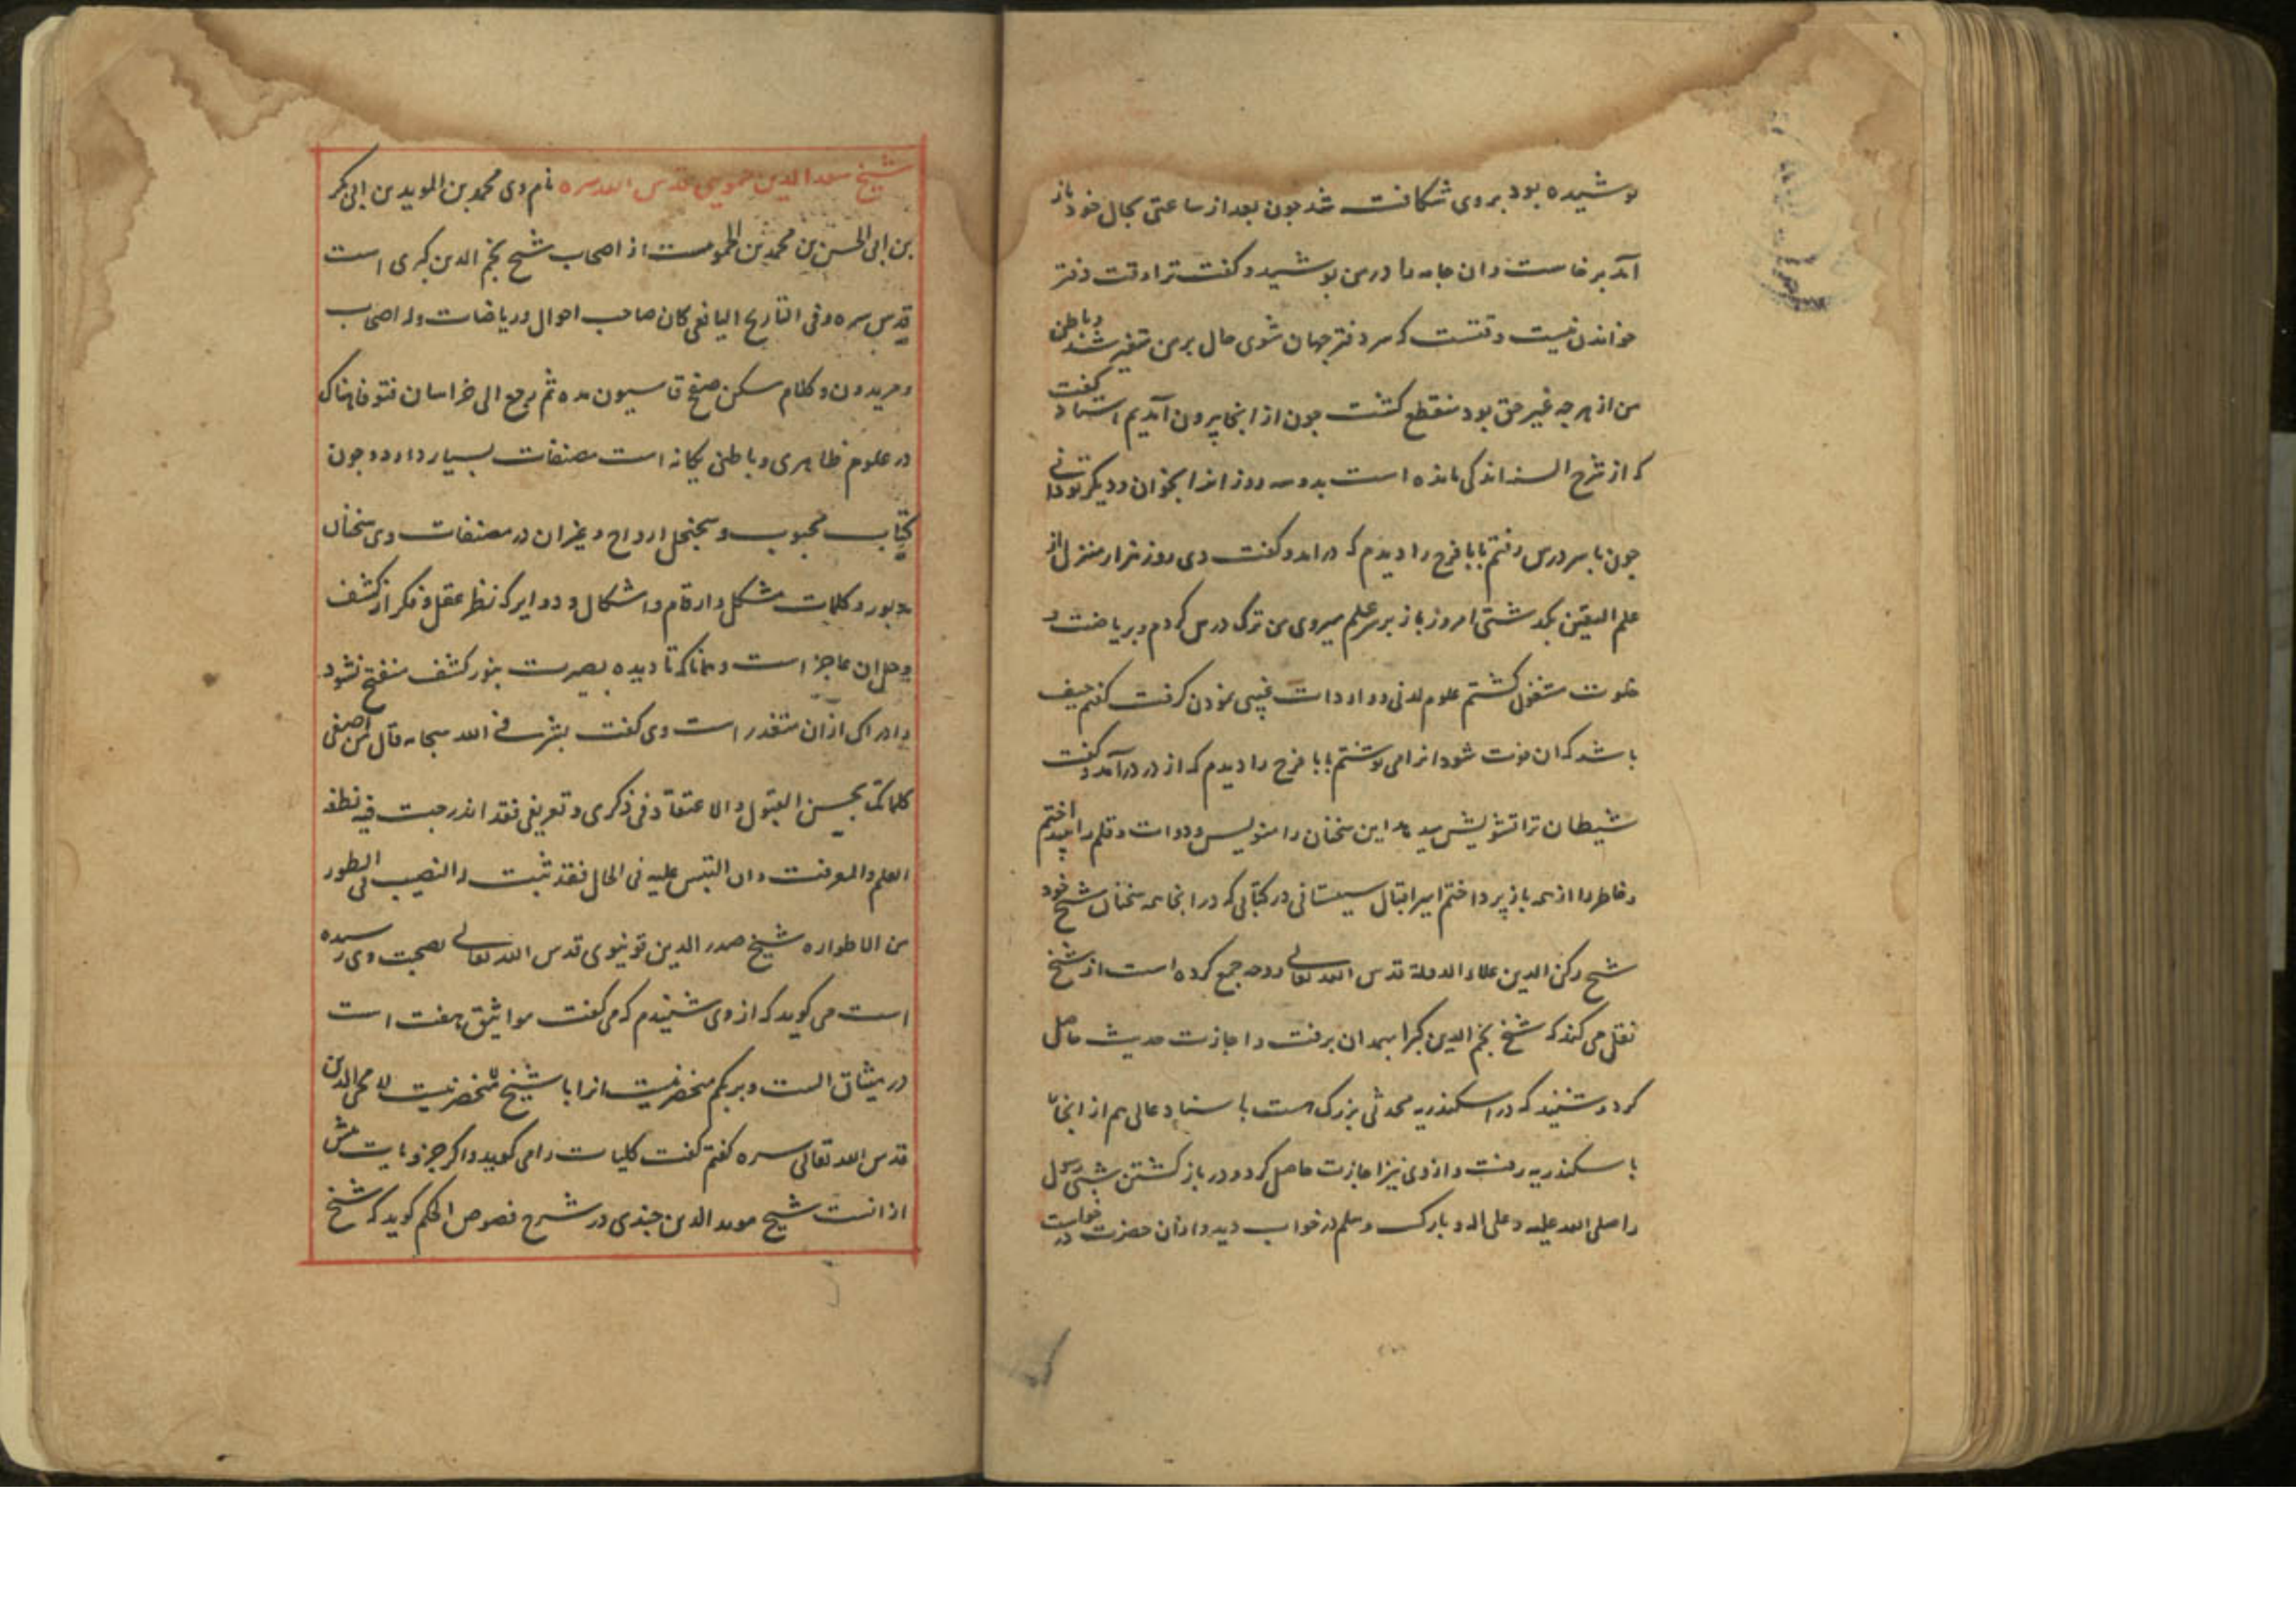 پوشیده بود بروی شکافت شد چون بعد از ساعتی بحال خود باز
آمد برخاست وان جامه را در من پوشید و کفت ترا وقت دفتر
خواندن نیست وقتست که سر دفتر جهان شوی حال بر من متغیر شد و باطن
من از هر چه غیر حق بود منقطع کشت چون از انجا بیرون آمدیم استاد کفت
که از شرح السنه اندکی مانده است بدو سه روز انرا بخوان و دیکر تو دانی
چون با سر درس رفتم بابا فرج را دیدم که درامد و کفت دی روز هزار منزل از
علم الیقین بکذشتی امروز باز بر سر علم میروی من ترک درس کردم و بریاضت و
خلوت مشغول کشتم علوم لدنی و واردات غیبی نمودن کرفت کفتم حیف
باشد که ان فوت شود انرا می نوشتم بابا فرج را دیدم که از در درآمد و کفت
شیطان ترا تشویش میدهد این سخنان را منویس دوات و قلم را بینداختم
و خاطر را از همه باز پرداختم امیر اقبال سیستانی در کتابی که در انجا همه سخنان شیخ خود
شیخ رکن الدین علاء الدوله قدس الله تعالی روحه جمع کرده است از شیخ
نقل می کند که شیخ نجم الدین کبرا بهمدان برفت و اجازت حدیث حاصل
کرد و شنید که در اسکندریه محدثی بزرک هست با سناد عالی هم از انجا
با سکندریه رفت و از وی نیز اجازت حاصل کرد و در باز کشتن شبی رسول
را صلی الله علیه و علی اله و بارک و سلم در خواب دید و ازان حضرت در خواست
شیخ سعد الدین حموی قدس الله سره نام وی محمد بن الموید بن ابی بکر
بن ابی الحسن بن محمد بن الحمویست از اصحاب شیخ نجم الدین کبری است
قدس سره و فی التاریخ الیافعی کان صاحب احوال و ریاضات وله اصحاب
و مریدون و کلام سکن صفح قاسیون مده ثم رجع الی خراسان فتوفا هناک
در علوم ظاهری و باطنی یکانه است مصنفات بسیار دارد چون
کتاب محبوب و سجنجل ارواح و غیران در مصنفات وی سخنان
مرموز و کلمات مشکل و ارقام و اشکال و دوایر که نظر عقل و فکر از کشف
و حل ان عاجز است و همانا که تا دیده بصیرت بنور کشف منفتح نشود
ادراک ازان متعذر است وی کفت بشرنی الله سبحانه قال من اصغی
کلماتک بحسن القبول و الاعتقاد فی ذکری و تعریفی فقد اندرجت فیه نطفة
العلم والمعرفت وان التبس علیه فی الحال فقد ثبت له النصیب فی الطور
من الاطواره شیخ صدر الدین قونیوی قدس الله تعالی بصحبت وی رسیده
است می کوید که از وی شنیدم که می کفت مواثیق هفت است
در میثاق الست و بربکم منحصر نیست انرا با شیخ محی الدین
قدس الله تعالی سره کفتم کفت کلیات را می کوید و اکر جزویات بیش
ازانست شیخ موید الدین جندی در شرح فصوص الحکم کوید که شیخ